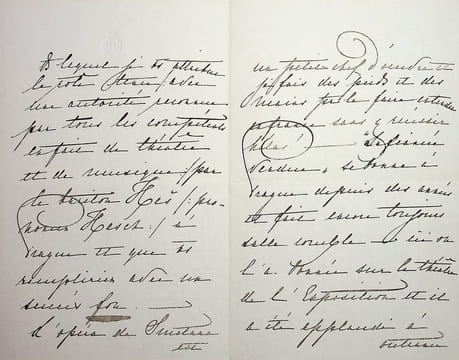 & lequel j'
le rôle
une autorité reconnue
par tous les compétents
en fait de théâtre
et de musique, par
le Hes /: pro-
noncer Hesch :/ à
Prague et que
remplirier avec un
succès fou. —
L'opéra de Smetana
est
un petit chef d'œuvre et
j'ai fais des pieds et des
mains pr le faire
en france sans y réussir
hélas! — "La fiancée
Vendue" se donne à
Prague depuis des années
et fait encore toujours
salle comble — ici on
l'a donnée sur le théâtre
de l'Exposition et il
a été applaudi à
outrance